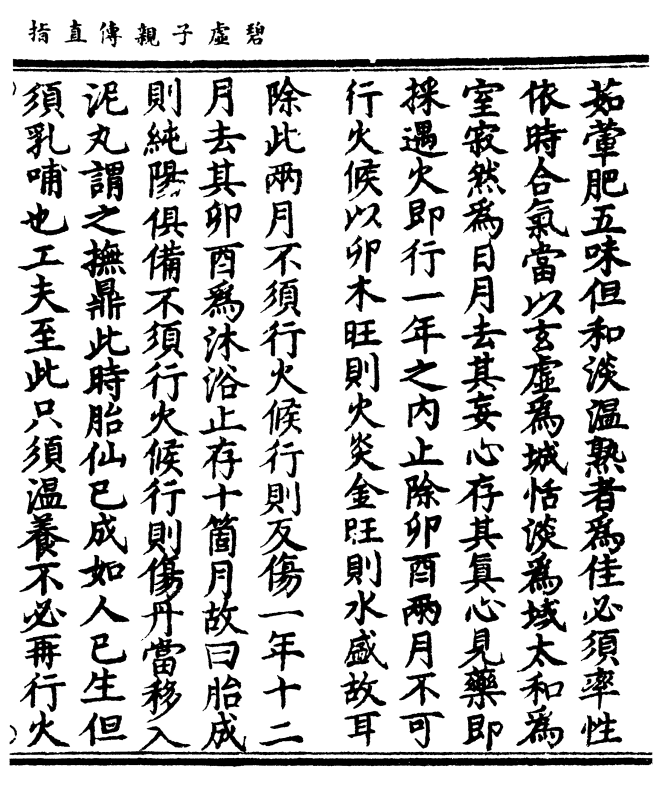 碧虛子親傳直指
茹葷肥五味但和淡溫熟者爲佳必須率性
依時合氣當以玄虛爲城恬淡爲域太和爲
室寂然爲日月去其妄心存其真心見藥即
採遇火即行一年之内止除卯酉兩月不可
行火候以卯木旺則火炎金旺則水盛故耳
除此兩月不須行火候行則反傷一年十二
月去其卯酉爲沐浴止存十箇月故曰胎成
則純陽俱備不須行火候行則傷丹當移入
泥丸謂之撫鼎此時胎仙已成如人已生但
須乳哺也工夫至此只須溫養不必再行火